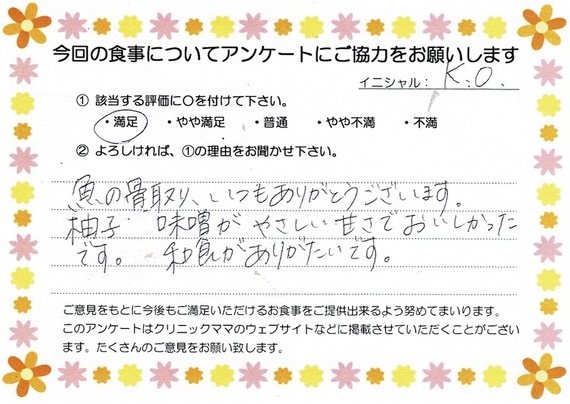 今回の食事についてアンケートにご協力をお願いします
イニシャル： K.O.
① 該当する評価に○を付けて下さい。
・満足 ・やや満足 ・普通 ・やや不満 ・不満
② よろしければ、①の理由をお聞かせ下さい。
魚の骨取り、いつもありがとうございます。
柚子 味噌が やさしい甘さでおいしかった
です。 和食がありがたいです。
ご意見をもとに今後もご満足いただけるお食事をご提供出来るよう努めてまいります。
このアンケートはクリニックママのウェブサイトなどに掲載させていただくことがござい
ます。たくさんのご意見をお願い致します。